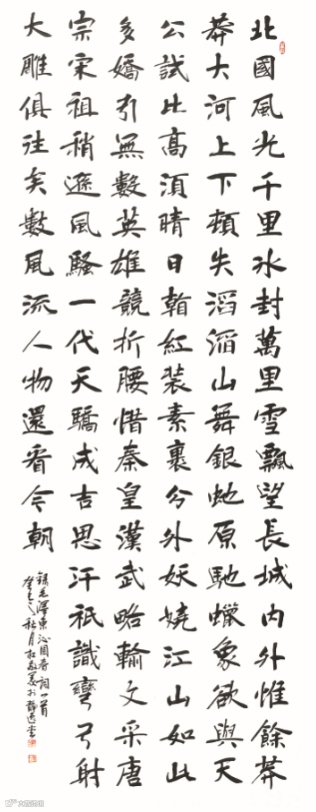 北國風光千里冰封萬里雪飄望長城内外惟餘莽
莽大河上下頓失滔滔山舞銀蛇原馳蠟象欲與天
公試比高須晴日看紅裝素裹分外妖嬈江山如此
多嬌引無數英雄競折腰惜秦皇漢武略輸文采唐
宗宋祖稍遜風騷一代天驕成吉思汗祇識彎弓射
大雕俱往矣數風流人物還看今朝
錄毛澤東沁園春詞一首
秋月